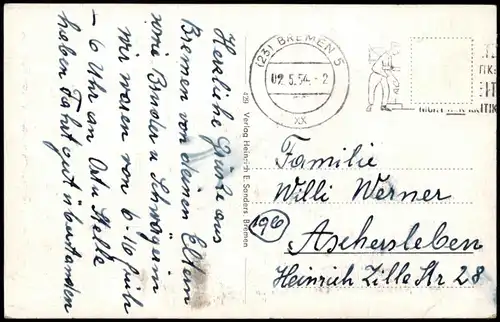 Herzliche Grüße aus
Bremen von deinen Eltern
sowie Bruder u. Schwägerin
wir waren von 6-16 früh
- 6 Uhr an Ort u. Stelle
haben Fahrt gut überstanden
429 Verlag Heinrich E. Sanders, Bremen
(23) BREMEN 5
02.5.54.-2
XX
NICHT DER KRITIK
Familie
Willi Werner
196
Aschersleben
Heinrich Zille Str 28